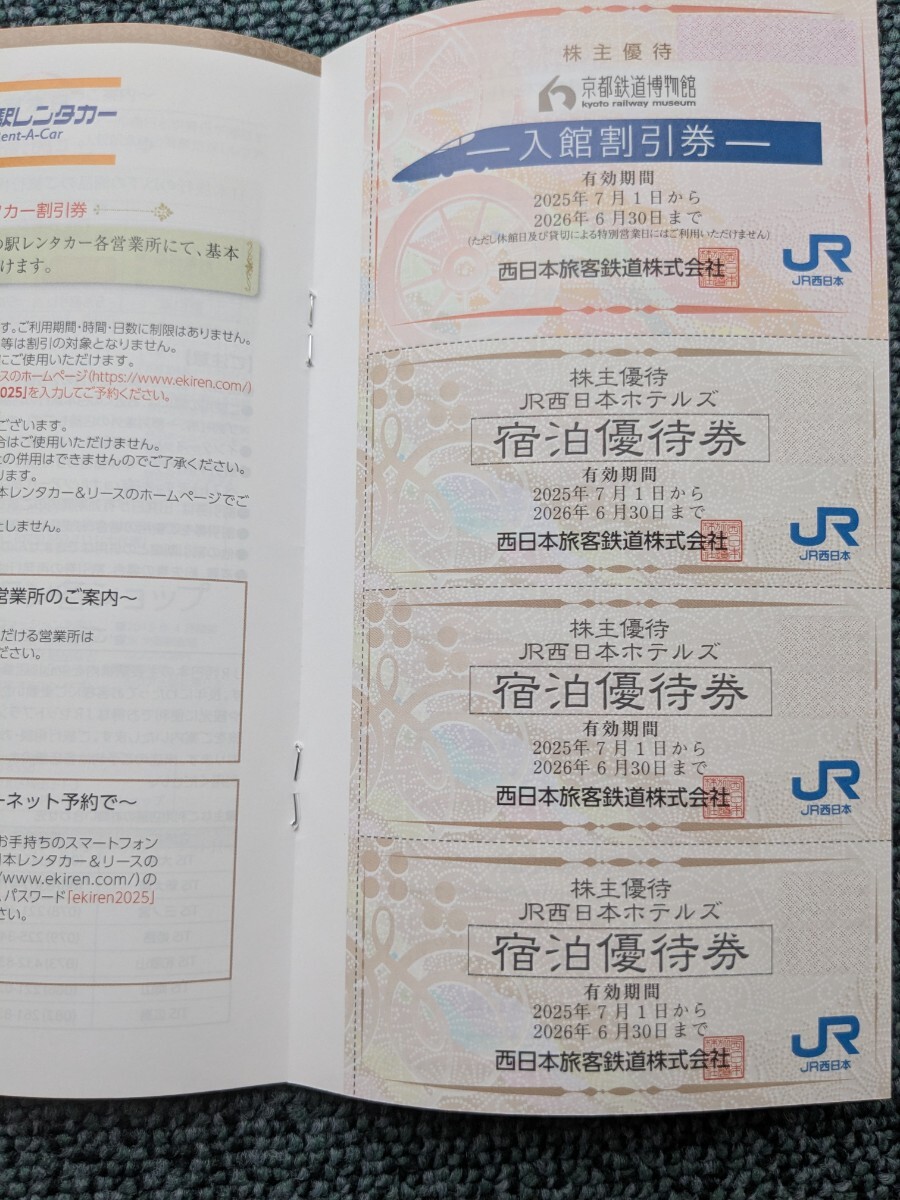 駅レンタカー
Rent-A-Car
カー割引券
の駅レンタカー各営業所にて、基本
けます。
す。ご利用期間・時間・日数に制限はありません。
等は割引の対象となりません。
にご使用いただけます。
スのホームページ(https://www.ekiren.com/)
2025」を入力してご予約ください。
ございます。
合はご使用いただけません。
との併用はできませんのでご了承ください。
ります。
本レンタカー&リースのホームページでご
たしません。
営業所のご案内〜
だける営業所は
ださい。
ーネット予約で〜
お手持ちのスマートフォン
本レンタカー&リースの
/www.ekiren.com/)の
、パスワード「ekiren2025」
さい。
株主優待
京都鉄道博物館
kyoto railway museum
入館割引券
有効期間
2025年7月1日から
2026年6月30日まで
(ただし休館日及び貸切による特別営業日にはご利用いただけません)
西日本旅客鉄道株式会社
JR
JR西日本
株主優待
JR西日本ホテルズ
宿泊優待券
有効期間
2025年7月1日から
2026年6月30日まで
西日本旅客鉄道株式会社
JR
JR西日本
株主優待
JR西日本ホテルズ
宿泊優待券
有効期間
2025年7月1日から
2026年6月30日まで
西日本旅客鉄道株式会社
JR
JR西日本
株主優待
JR西日本ホテルズ
宿泊優待券
有効期間
2025年7月1日から
2026年6月30日まで
西日本旅客鉄道株式会社
JR
JR西日本